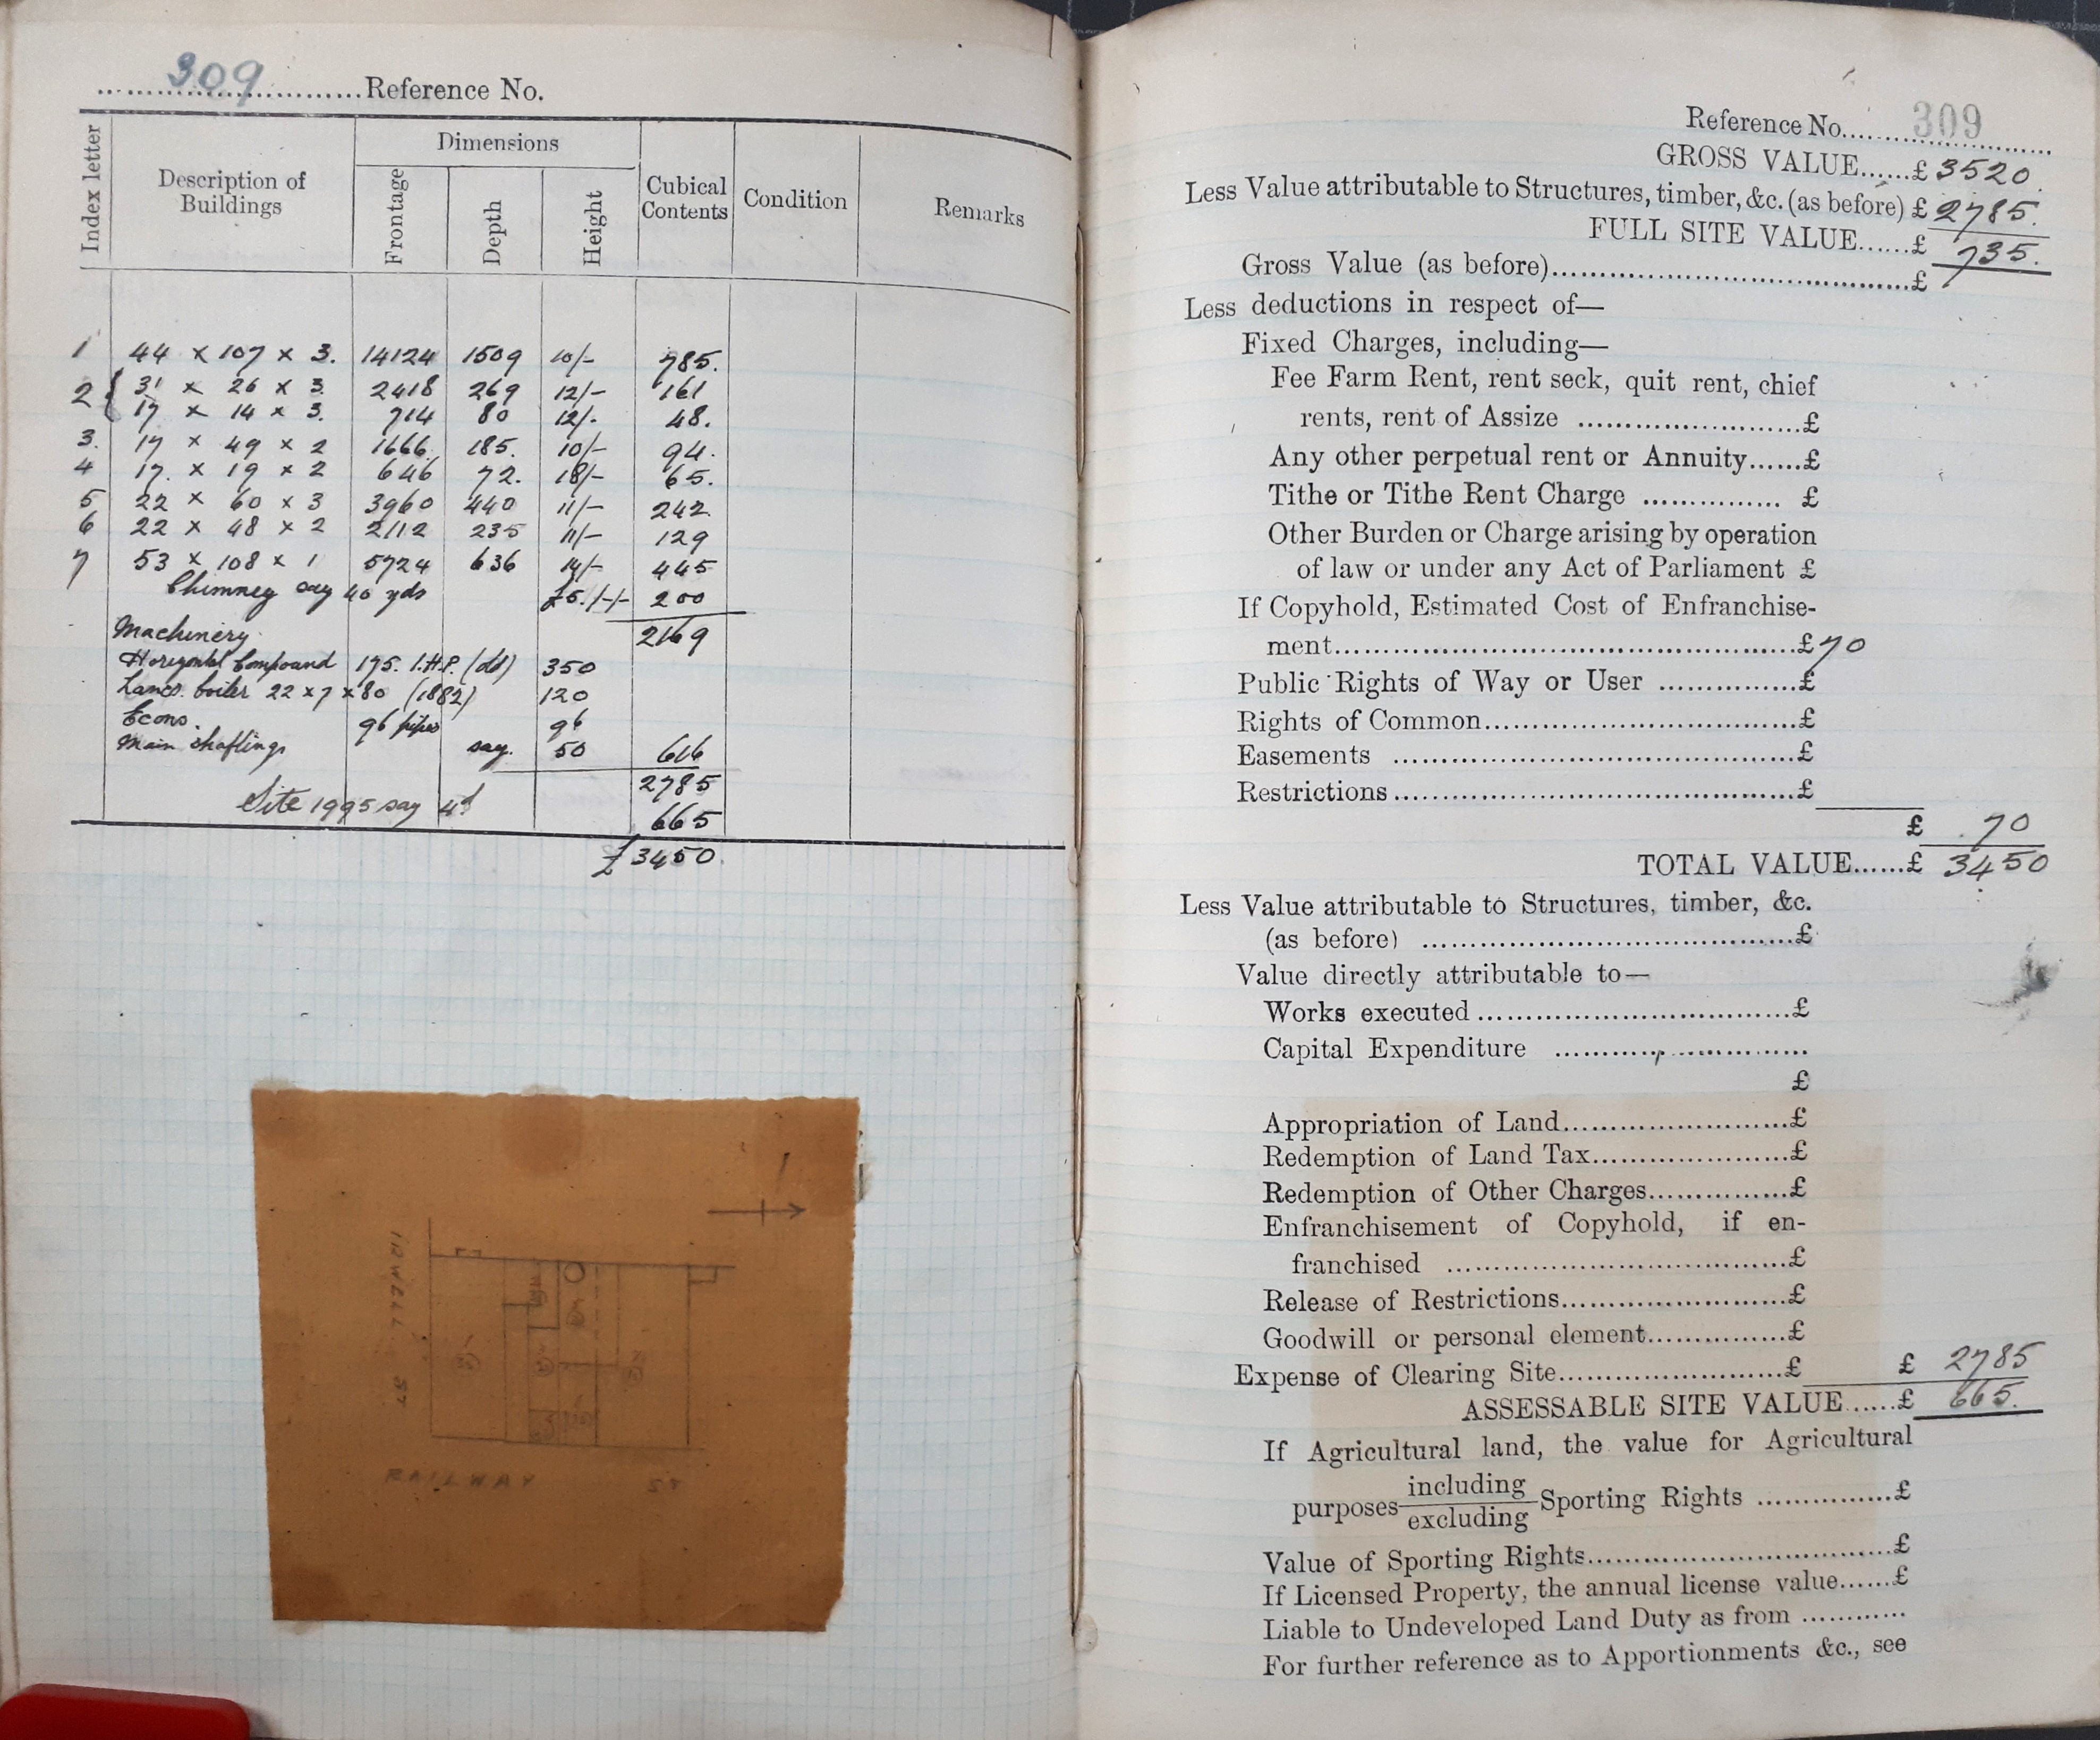 309 Reference No.
Index letter
Description of Buildings
Dimensions
Frontage
Depth
Height
Cubical Contents
Condition
Remarks
1 44 x 107 x 3. 14124 1509 10/- 785.
2 { 31 x 26 x 3 2418 269 12/- 161
17 x 14 x 3. 714 80 12/- 48.
3. 17 x 49 x 2 1666 185. 10/- 94.
4 17. x 19 x 2 646 72. 18/- 65.
5 22 x 60 x 3 3960 440 11/- 242.
6 22 x 48 x 2 2112 235 11/- 129
7 53 x 108 x 1 5724 636 14/- 445
Chimney say 40 yds £5./-/- 200
Machinery. 2169
Horizontal Compound 175. I.H.P. (old) 350
Lancs. boiler 22 x 7 x 80 (1882) 120
Econs. 96 pipes 96
Main shaftings say. 50 616
2785
Site 1995 say 4d 665
£3450.
IRWELL ST
RAILWAY ST
Reference No. 309
GROSS VALUE......£ 3520.
Less Value attributable to Structures, timber, &c. (as before) £ 2785.
FULL SITE VALUE......£ 735.
Gross Value (as before)..........£
Less deductions in respect of—
Fixed Charges, including—
Fee Farm Rent, rent seck, quit rent, chief
rents, rent of Assize ..........£
Any other perpetual rent or Annuity......£
Tithe or Tithe Rent Charge ............... £
Other Burden or Charge arising by operation
of law or under any Act of Parliament £
If Copyhold, Estimated Cost of Enfranchise-
ment..........£ 70
Public Rights of Way or User ...............£
Rights of Common..........£
Easements ..........£
Restrictions..........£
£ 70
TOTAL VALUE......£ 3450
Less Value attributable to Structures, timber, &c.
(as before) ..........£
Value directly attributable to—
Works executed..........£
Capital Expenditure ..........
£
Appropriation of Land..........£
Redemption of Land Tax..........£
Redemption of Other Charges...............£
Enfranchisement of Copyhold, if en-
franchised ..........£
Release of Restrictions..........£
Goodwill or personal element...............£
Expense of Clearing Site..........£ £ 2785
ASSESSABLE SITE VALUE......£ 665.
If Agricultural land, the value for Agricultural
purposes including excluding Sporting Rights ...............£
Value of Sporting Rights..........£
If Licensed Property, the annual license value......£
Liable to Undeveloped Land Duty as from ............
For further reference as to Apportionments &c., see